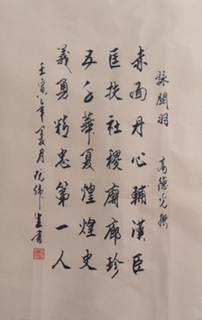 詠關羽 高德光撰
赤面丹心輔漢臣
匡扶社稷廟廊珍
五千華夏煌煌史
義勇精忠第一人
壬寅年夏月 生書